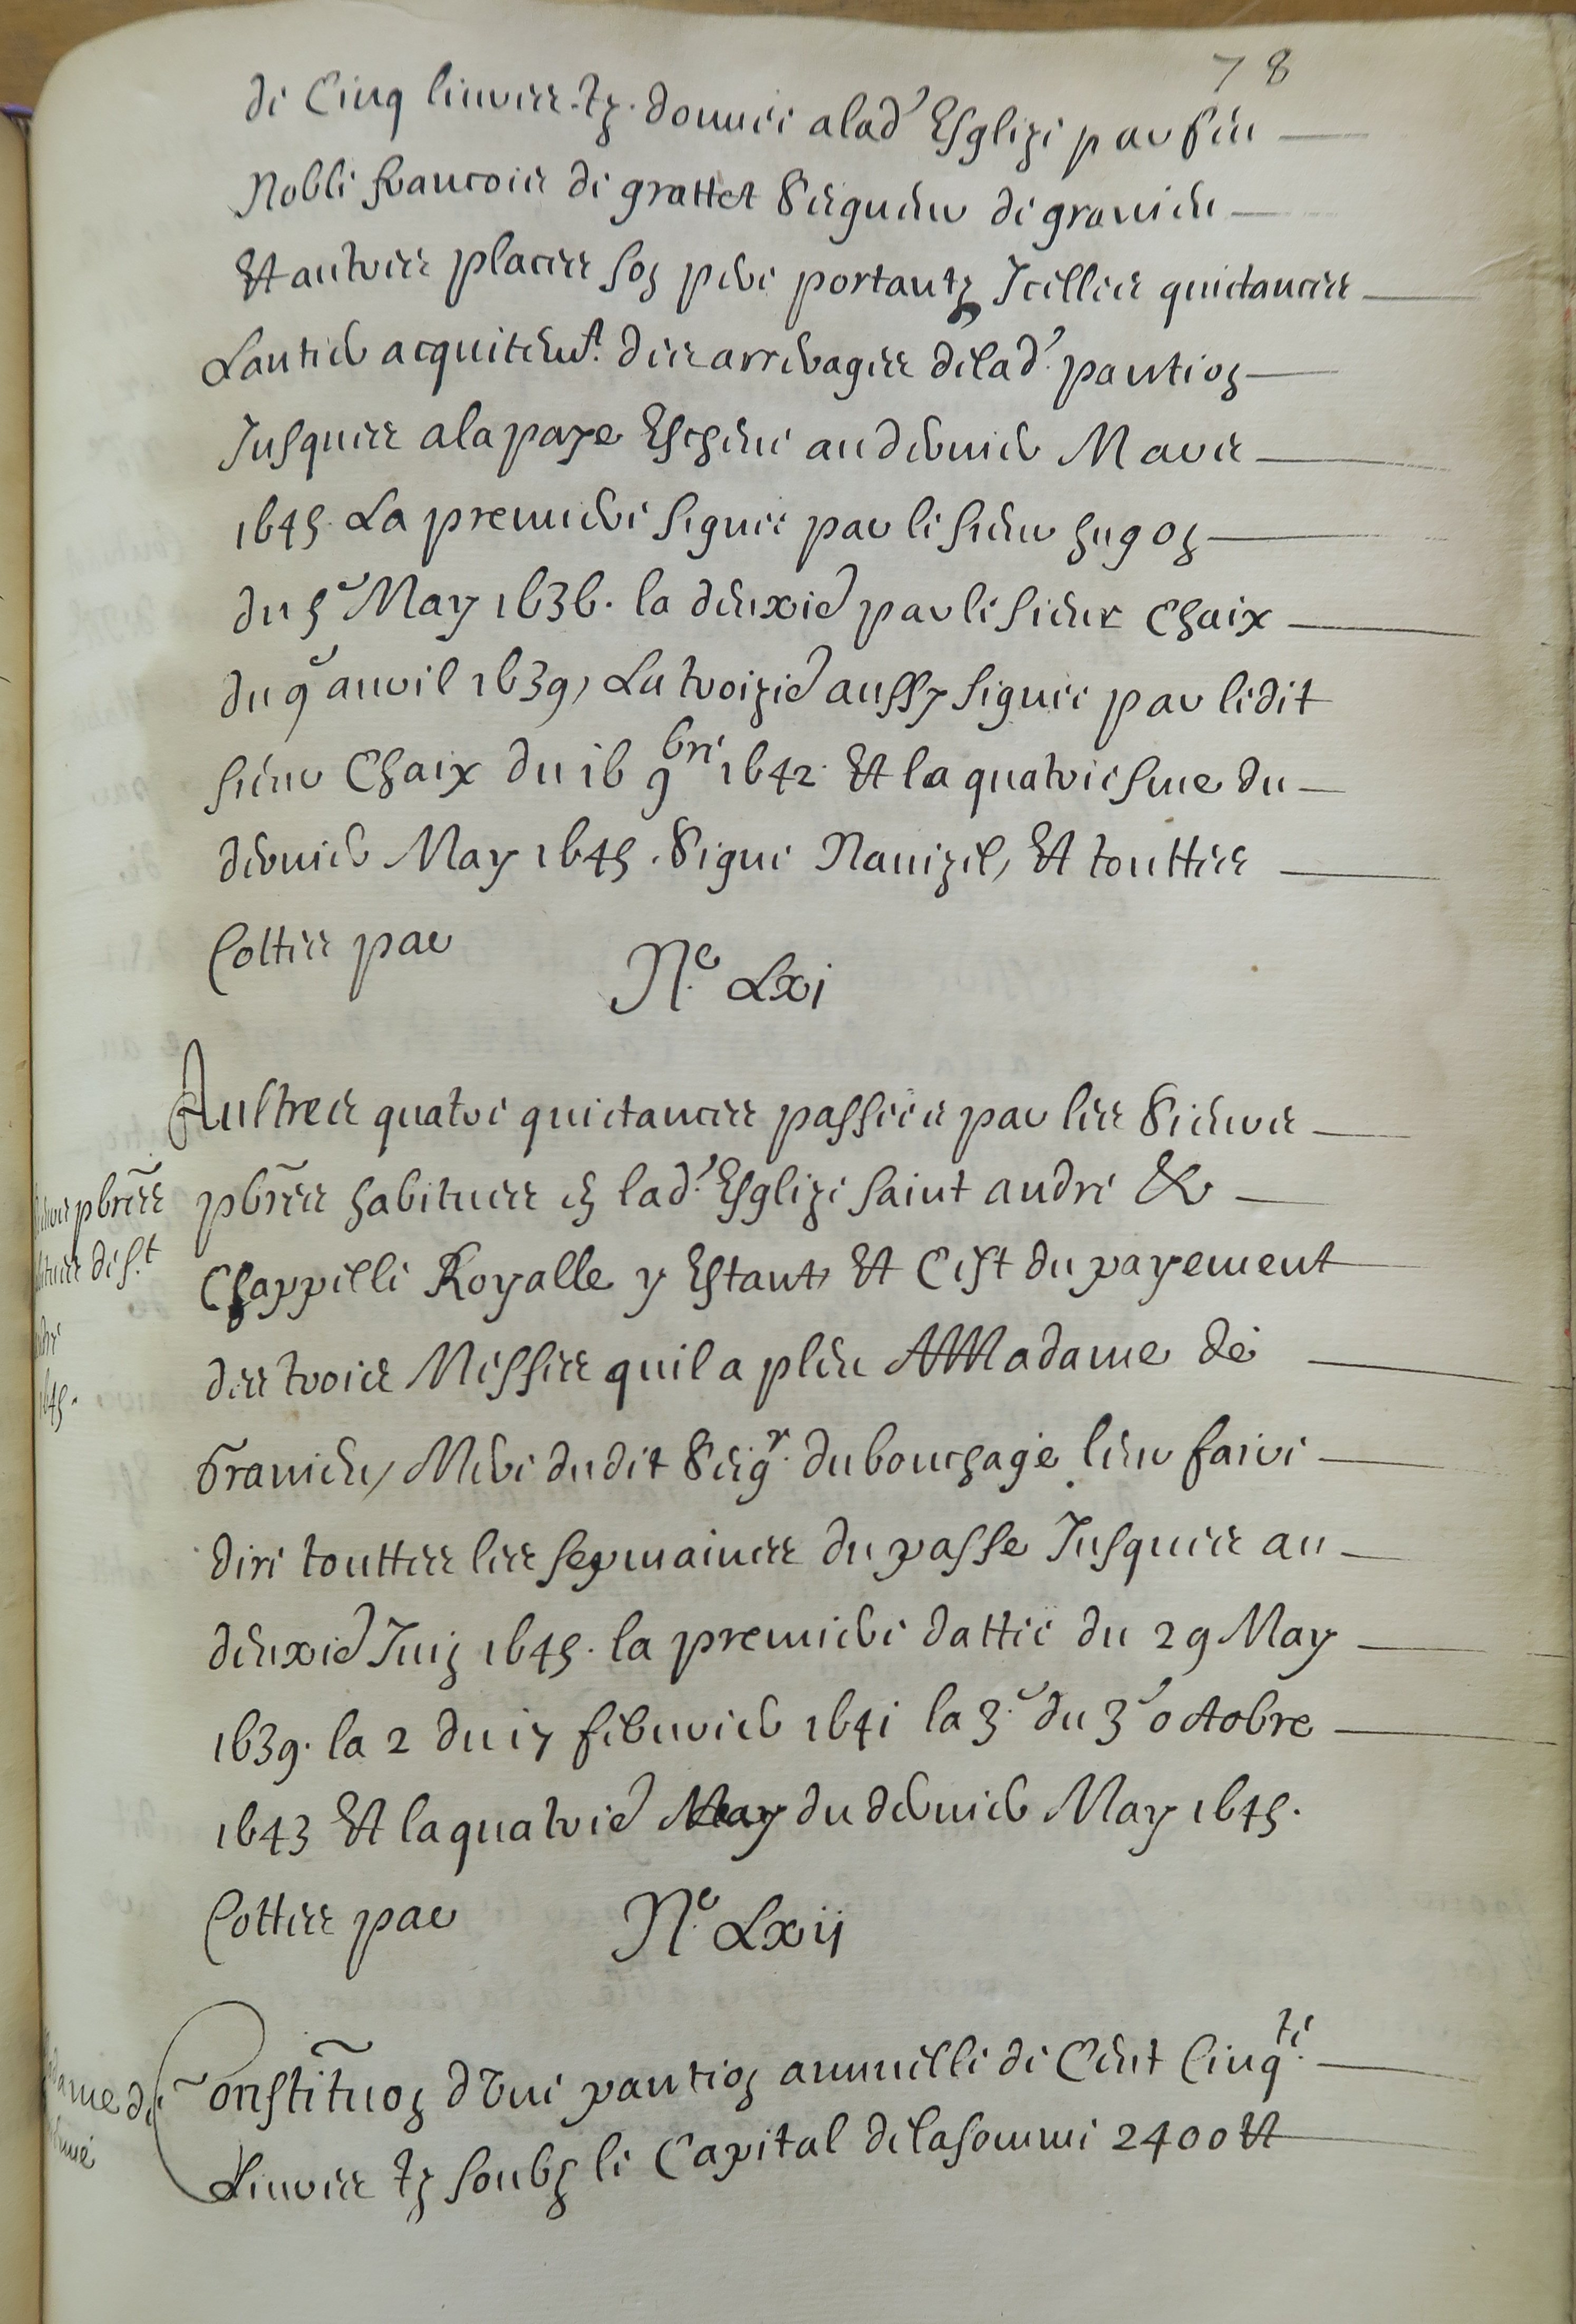 78
de Cinq liuvres tz. donnee a lad' Esglize par feu
Noble francois de grattet Seigneur de granieu
Et autres places son pere portantz Icelles quictances
Lantier acquitem.t des arrerages de lad.' pantion
Jusques a la paye Escheue au dernier Mars
1645. La premiere signee par le sieur hugon
du 5e May 1636. la deuxie par le sieur Chaix
du 9e auril 1639, La troizie aussy signee par ledit
sieur Chaix du 16 9bre 1642. Et la quatriesme du
dernier May 1645. Signe Nauizel, Et touttes
Cottes par
N.e Lxi
Aultres quatre quictances passees par les Sieurs
pbres habitues en lad.' Esglize saint andre &
Chappelle Royalle y Estant, Et C'est du payement
des trois Messes quil a pleu A Madame de
Granieu, Mere dudit Seigr. du bouchage leur faire
dire touttes les sepmaines du passe Jusques au
deuxie Juin 1645. la premiere dattee du 29 May
1639. la 2 du 17 feburier 1641 la 3.e du 3e octobre
1643 Et la quatrie May du dernier May 1645.
Cottes par
N.e Lxii
Constituon d'Une pantion annuelle de Cent Cinqte.
Liuvres tz soubz le Capital de la somme 2400 tt
pbres
de S.t